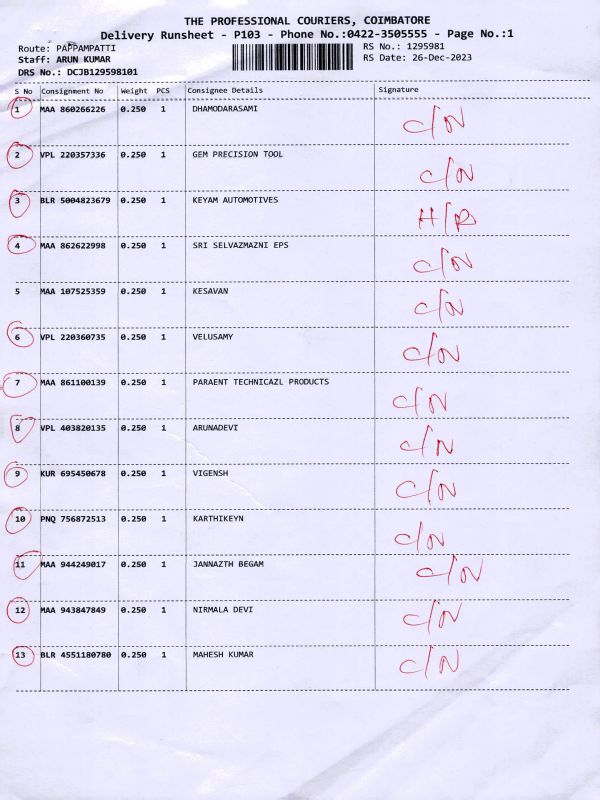 THE PROFESSIONAL COURIERS, COIMBATORE
Delivery Runsheet - P103 - Phone No.:0422-3505555 - Page No.:1
Route: PAPPAMPATTI
RS No.: 1295981
Staff: ARUN KUMAR
RS Date: 26-Dec-2023
DRS No.: DCJB129598101
S No Consignment No Weight PCS Consignee Details Signature
1 MAA 860266226 0.250 1 DHAMODARASAMI C/N
2 VPL 220357336 0.250 1 GEM PRECISION TOOL C/N
3 BLR 5004823679 0.250 1 KEYAM AUTOMOTIVES H/R
4 MAA 862622998 0.250 1 SRI SELVAZMAZNI EPS C/N
5 MAA 107525359 0.250 1 KESAVAN C/N
6 VPL 220360735 0.250 1 VELUSAMY C/N
7 MAA 861100139 0.250 1 PARAENT TECHNICAZL PRODUCTS C/N
8 VPL 403820135 0.250 1 ARUNADEVI C/N
9 KUR 695450678 0.250 1 VIGENSH C/N
10 PNQ 756872513 0.250 1 KARTHIKEYN C/N
11 MAA 944249017 0.250 1 JANNAZTH BEGAM C/N
12 MAA 943847849 0.250 1 NIRMALA DEVI C/N
13 BLR 4551180780 0.250 1 MAHESH KUMAR C/N